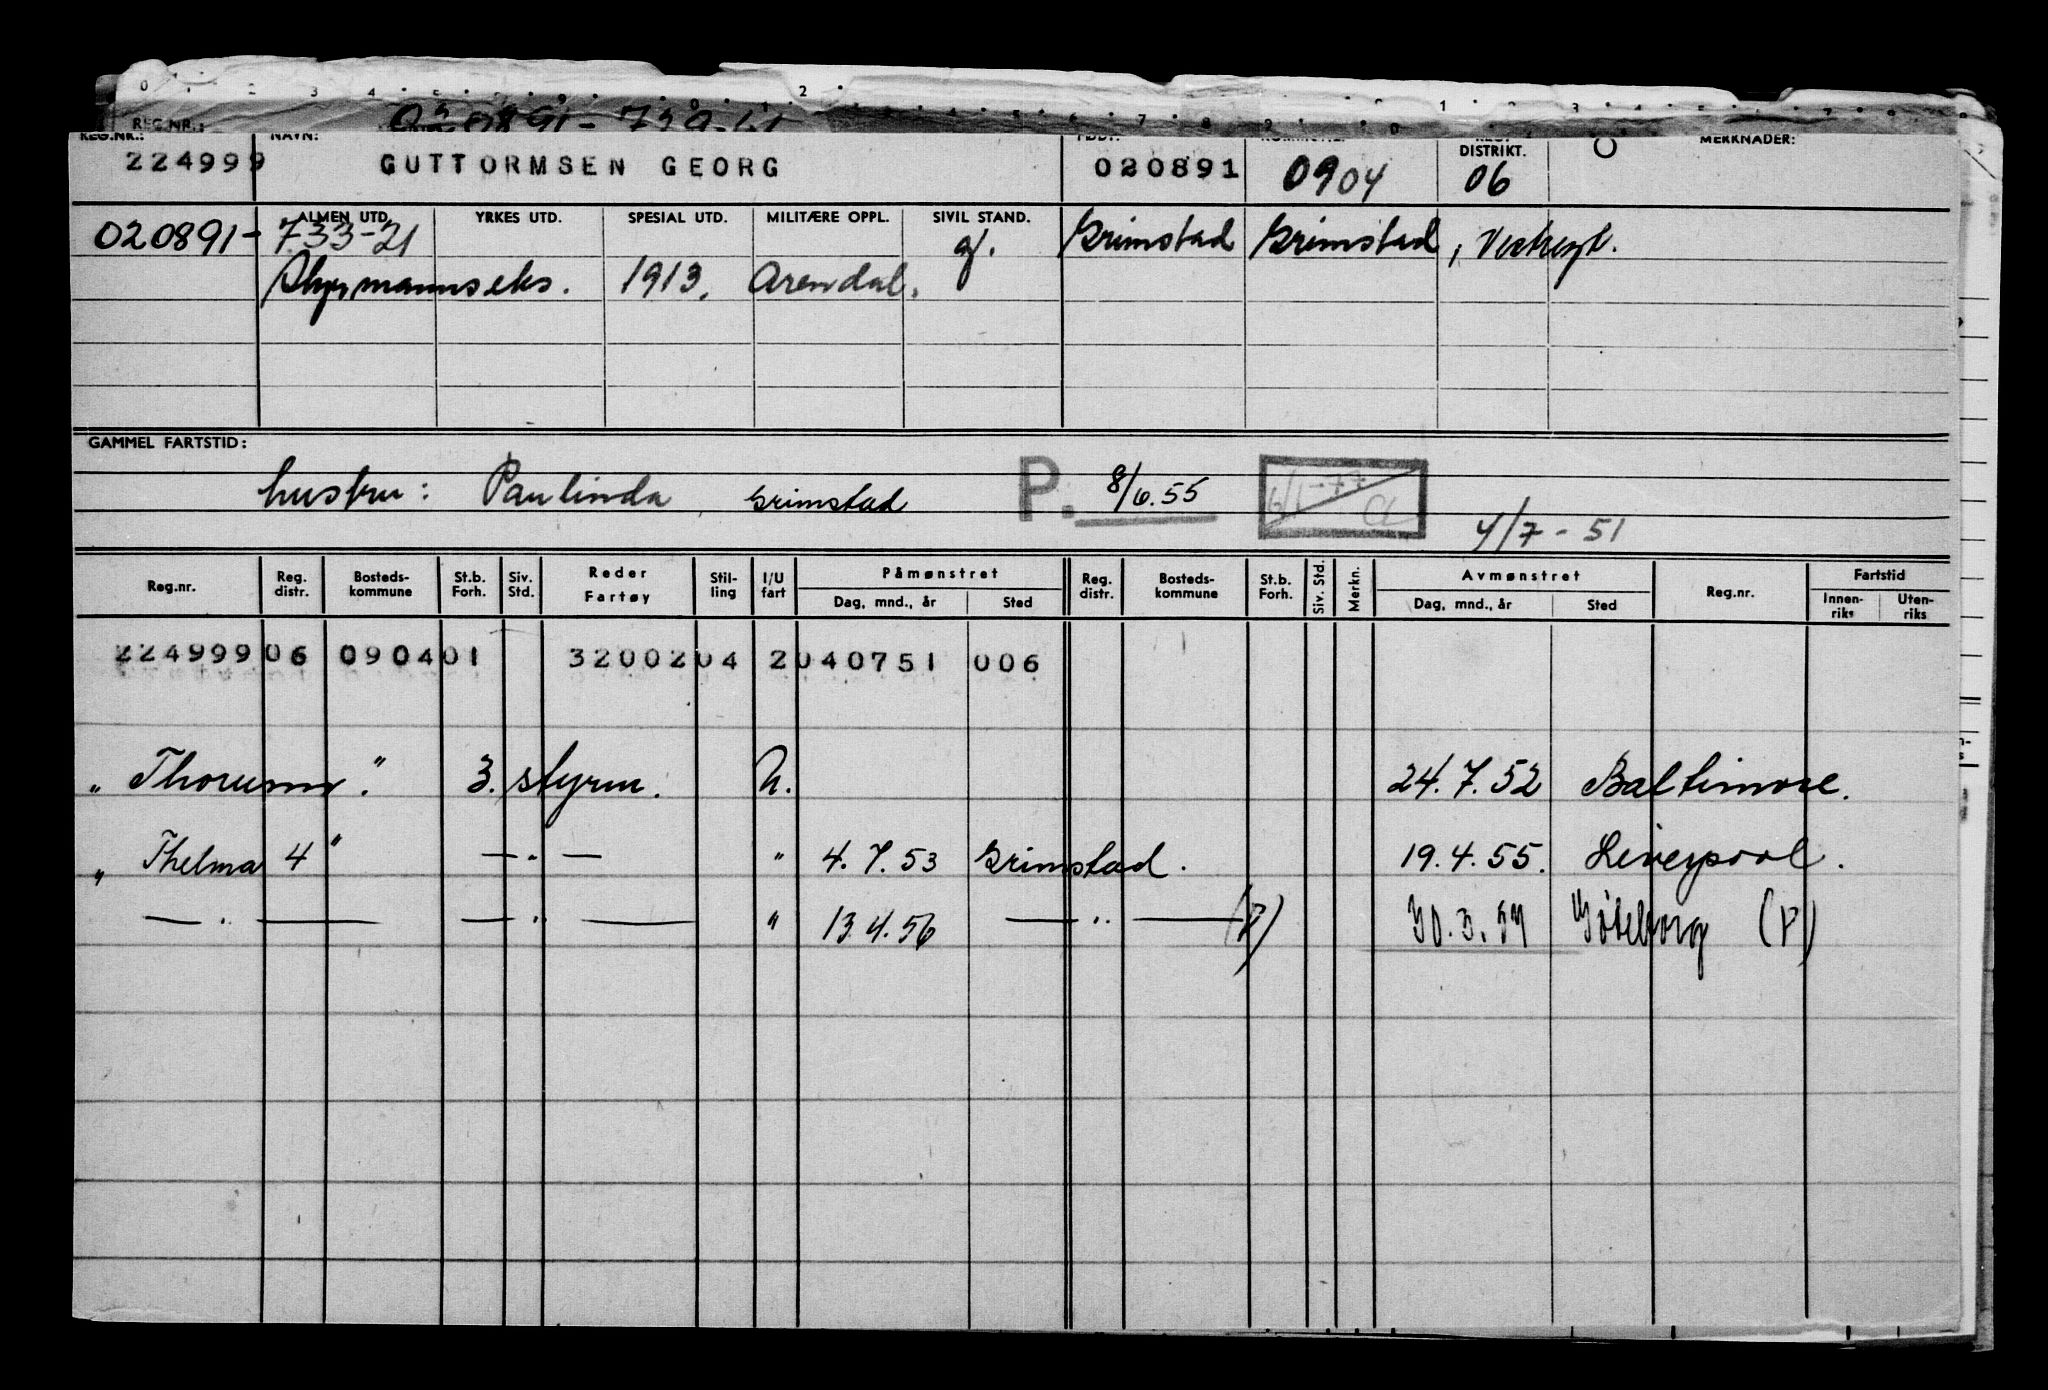 REG.NR.: 020891-
REG.NR.: NAVN: DISTRIKT. MERKNADER:
224999 GUTTORMSEN GEORG 020891 0904 06
ALMEN UTD. YRKES UTD. SPESIAL UTD. MILITÆRE OPPL. SIVIL STAND.
020891- 733-21 g. Grimstad Grimstad,
Styrmannseks. 1913. Arendal.
GAMMEL FARTSTID:
hustru: Paulinda, Grimstad P. 8/6.55
4/7-51
Reg.nr. Reg. distr. Bosteds-kommune St.b. Forh. Siv. Std. Reder Fartøy Stil-ling I/U fart Påmønstret Dag, mnd., år Sted Reg. distr. Bosteds-kommune St.b. Forh. Siv. Std. Merkn. Avmønstret Dag, mnd., år Sted Reg.nr. Fartstid Innen-riks Uten-riks
224999 06 0904 01 320020 4 2 040751 006
" Thorunn". 3. styrm. U. 24.7.52 Baltimore.
" Thelma 4" — " — " 4.7.53 Grimstad. 19.4.55. Liverpool.
— " — — " — " 13.4.56 — " — (P) 30.3.57 Gøteborg (P)